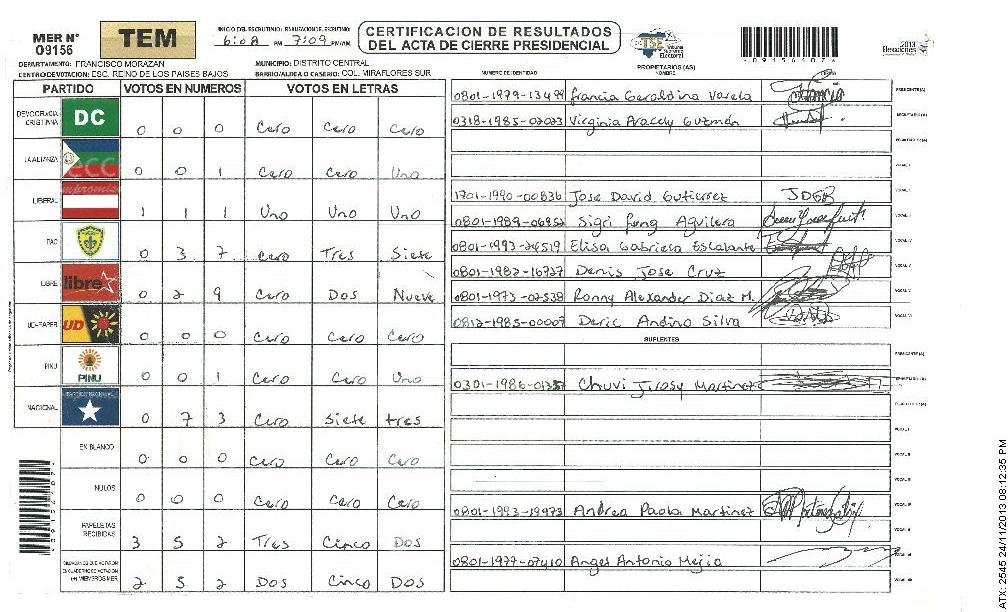 MER N° 09156
TEM
INICIO DEL ESCRUTINIO: 6:08 PM
7:09 PM/AM
CERTIFICACION DE RESULTADOS
DEL ACTA DE CIERRE PRESIDENCIAL
TSE Tribunal Supremo Electoral
2013
Elecciones
DEPARTAMENTO: FRANCISCO MORAZAN
MUNICIPIO: DISTRITO CENTRAL
CENTRO DE VOTACION: ESC. REINO DE LOS PAISES BAJOS
BARRIO/ALDEA O CASERIO: COL. MIRAFLORES SUR
PARTIDO VOTOS EN NUMEROS VOTOS EN LETRAS
DEMOCRACIA CRISTIANA DC 0 0 0 Cero Cero Cero
LA ALIANZA 0 0 1 Cero Cero Uno
LIBERAL 1 1 1 Uno Uno Uno
PAC 0 3 7 Cero Tres Siete
LIBRE libre 0 2 9 Cero Dos Nueve
UD-FAPER UD 0 0 0 Cero Cero Cero
PINU PINU 0 0 1 Cero Cero Uno
NACIONAL 0 7 3 Cero Siete tres
EN BLANCO 0 0 0 Cero Cero Cero
NULOS 0 0 0 Cero Cero Cero
PAPELETAS RECIBIDAS 3 5 2 Tres Cinco Dos
CIUDADANOS QUE VOTARON EN CUADERNO DE VOTACION (+) MIEMBROS MER 2 5 2 Dos Cinco Dos
NUMERO DE IDENTIDAD PROPIETARIOS (AS) NOMBRE FIRMA
0801-1979-13499 Francia Geraldina Varela PRESIDENTE (A)
0318-1985-02023 Virginia Aracely Guzmán SECRETARIO (A)
1701-1990-00836 Jose David Gutierrez JDGB
0801-1989-06952 Aguilera
0801-1993-24519 Elisa Gabriela Escalante
0801-1982-16737 Denis Jose Cruz
0801-1973-02538 Ronny Alexander Diaz M.
0812-1985-00007 Deric Andino Silva
SUPLENTES
Martinez
0801-1993-19973 Andrea Paola Martinez
0801-1977-07410 Angel Antonio Mejia
ATX: 2545 24/11/2013 08:12:35 PM